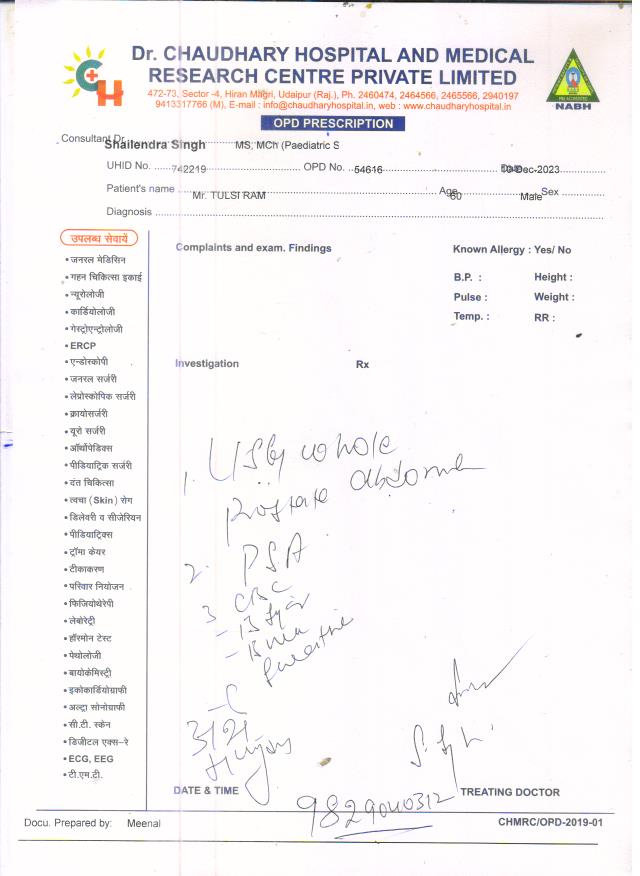 Dr. CHAUDHARY HOSPITAL AND MEDICAL
RESEARCH CENTRE PRIVATE LIMITED
472-73, Sector -4, Hiran Magri, Udaipur (Raj.), Ph. 2460474, 2464566, 2465566, 2940197
9413317766 (M), E-mail : info@chaudharyhospital.in, web : www.chaudharyhospital.in
NABH
OPD PRESCRIPTION
Consultant Dr.
Shailendra Singh MS, MCh (Paediatric S
UHID No. 742219 OPD No. 54616 10-Dec-2023
Patient's name Mr. TULSI RAM Age 60 Male Sex
Diagnosis
उपलब्ध सेवायें
• जनरल मेडिसिन
• गहन चिकित्सा इकाई
• न्यूरोलोजी
• कार्डियोलोजी
• गेस्ट्रोएन्ट्रोलोजी
• ERCP
• एन्डोस्कोपी
• जनरल सर्जरी
• लेप्रोस्कोपिक सर्जरी
• क्रायोसर्जरी
• यूरो सर्जरी
• ऑर्थोपेडिक्स
• पीडियाट्रिक सर्जरी
• दंत चिकित्सा
• त्वचा (Skin) रोग
• डिलेवरी व सीजेरियन
• पीडियाट्रिक्स
• ट्रॉमा केयर
• टीकाकरण
• परिवार नियोजन
• फिजियोथेरेपी
• लेबोरेट्री
• हॉरमोन टेस्ट
• पेथोलोजी
• बायोकेमिस्ट्री
• इकोकार्डियोग्राफी
• अल्ट्रा सोनोग्राफी
• सी.टी. स्केन
• डिजीटल एक्स-रे
• ECG, EEG
• टी.एम.टी.
Complaints and exam. Findings
Known Allergy : Yes/ No
B.P. : Height :
Pulse : Weight :
Temp. : RR :
Investigation Rx
1. USG whole
Prostate abdomen
2. PSA
3 CBC
- B Sugar
- B urea
9829040312
DATE & TIME TREATING DOCTOR
Docu. Prepared by: Meenal CHMRC/OPD-2019-01